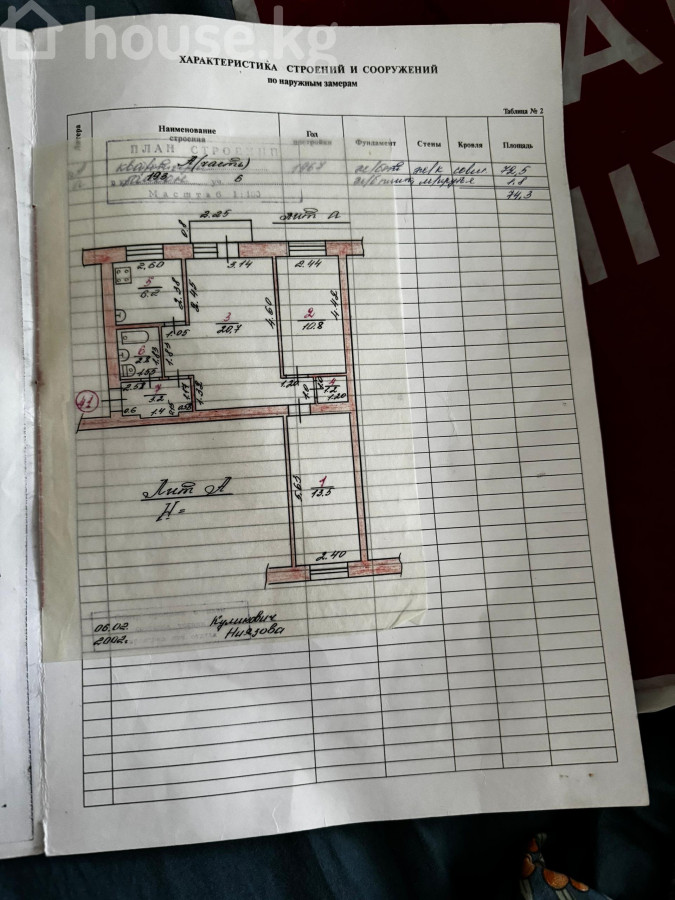 house.kg
ХАРАКТЕРИСТИКА СТРОЕНИЙ И СООРУЖЕНИЙ
по наружным замерам
Таблица № 2
Литера
Наименование строения
Год постройки
Фундамент
Стены
Кровля
Площадь
ПЛАН СТРОЕНИЯ
А (часть)
1967
ж/к
совм.
72,5
193
6
1.8
Масштаб 1:100
74,3
2.25
лит А
2.60
3.14
2.44
5
6.2
2.38
3.45
3
20,7
4.60
2
10.8
4.42
1.05
6
1.83
1.20
4
1.2
1.20
1.0
7
3.2
1.4
0.6
1.32
41
Лит А
Н=
5.63
1
13.5
2.40
06.02
2002г.
Куликович
Ниязова